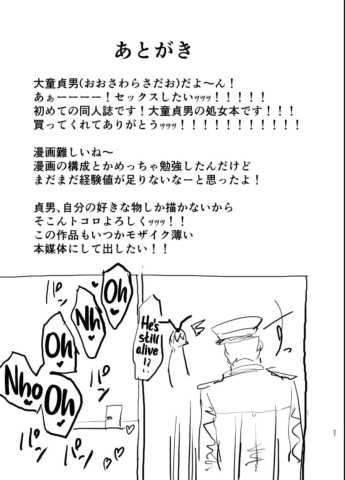 あとがき
大童貞男(おおさわらさだお)だよ～ん！
あぁーーーー！セックスしたいｯｯｯ！！！！！
初めての同人誌です！大童貞男の処女本です！！！
買ってくれてありがとうｯｯｯ！！！！！！！！！！！
漫画難しいね～
漫画の構成とかめっちゃ勉強したんだけど
まだまだ経験値が足りないなーと思ったよ！
貞男、自分の好きな物しか描かないから
そこんトコロよろしくｯｯｯ！！
この作品もいつかモザイク薄い
本媒体にして出したい！！
He's
still
alive
!?
Oh
Nh
Oh
Oh
Nho
パン
パン
パン
パン
パン